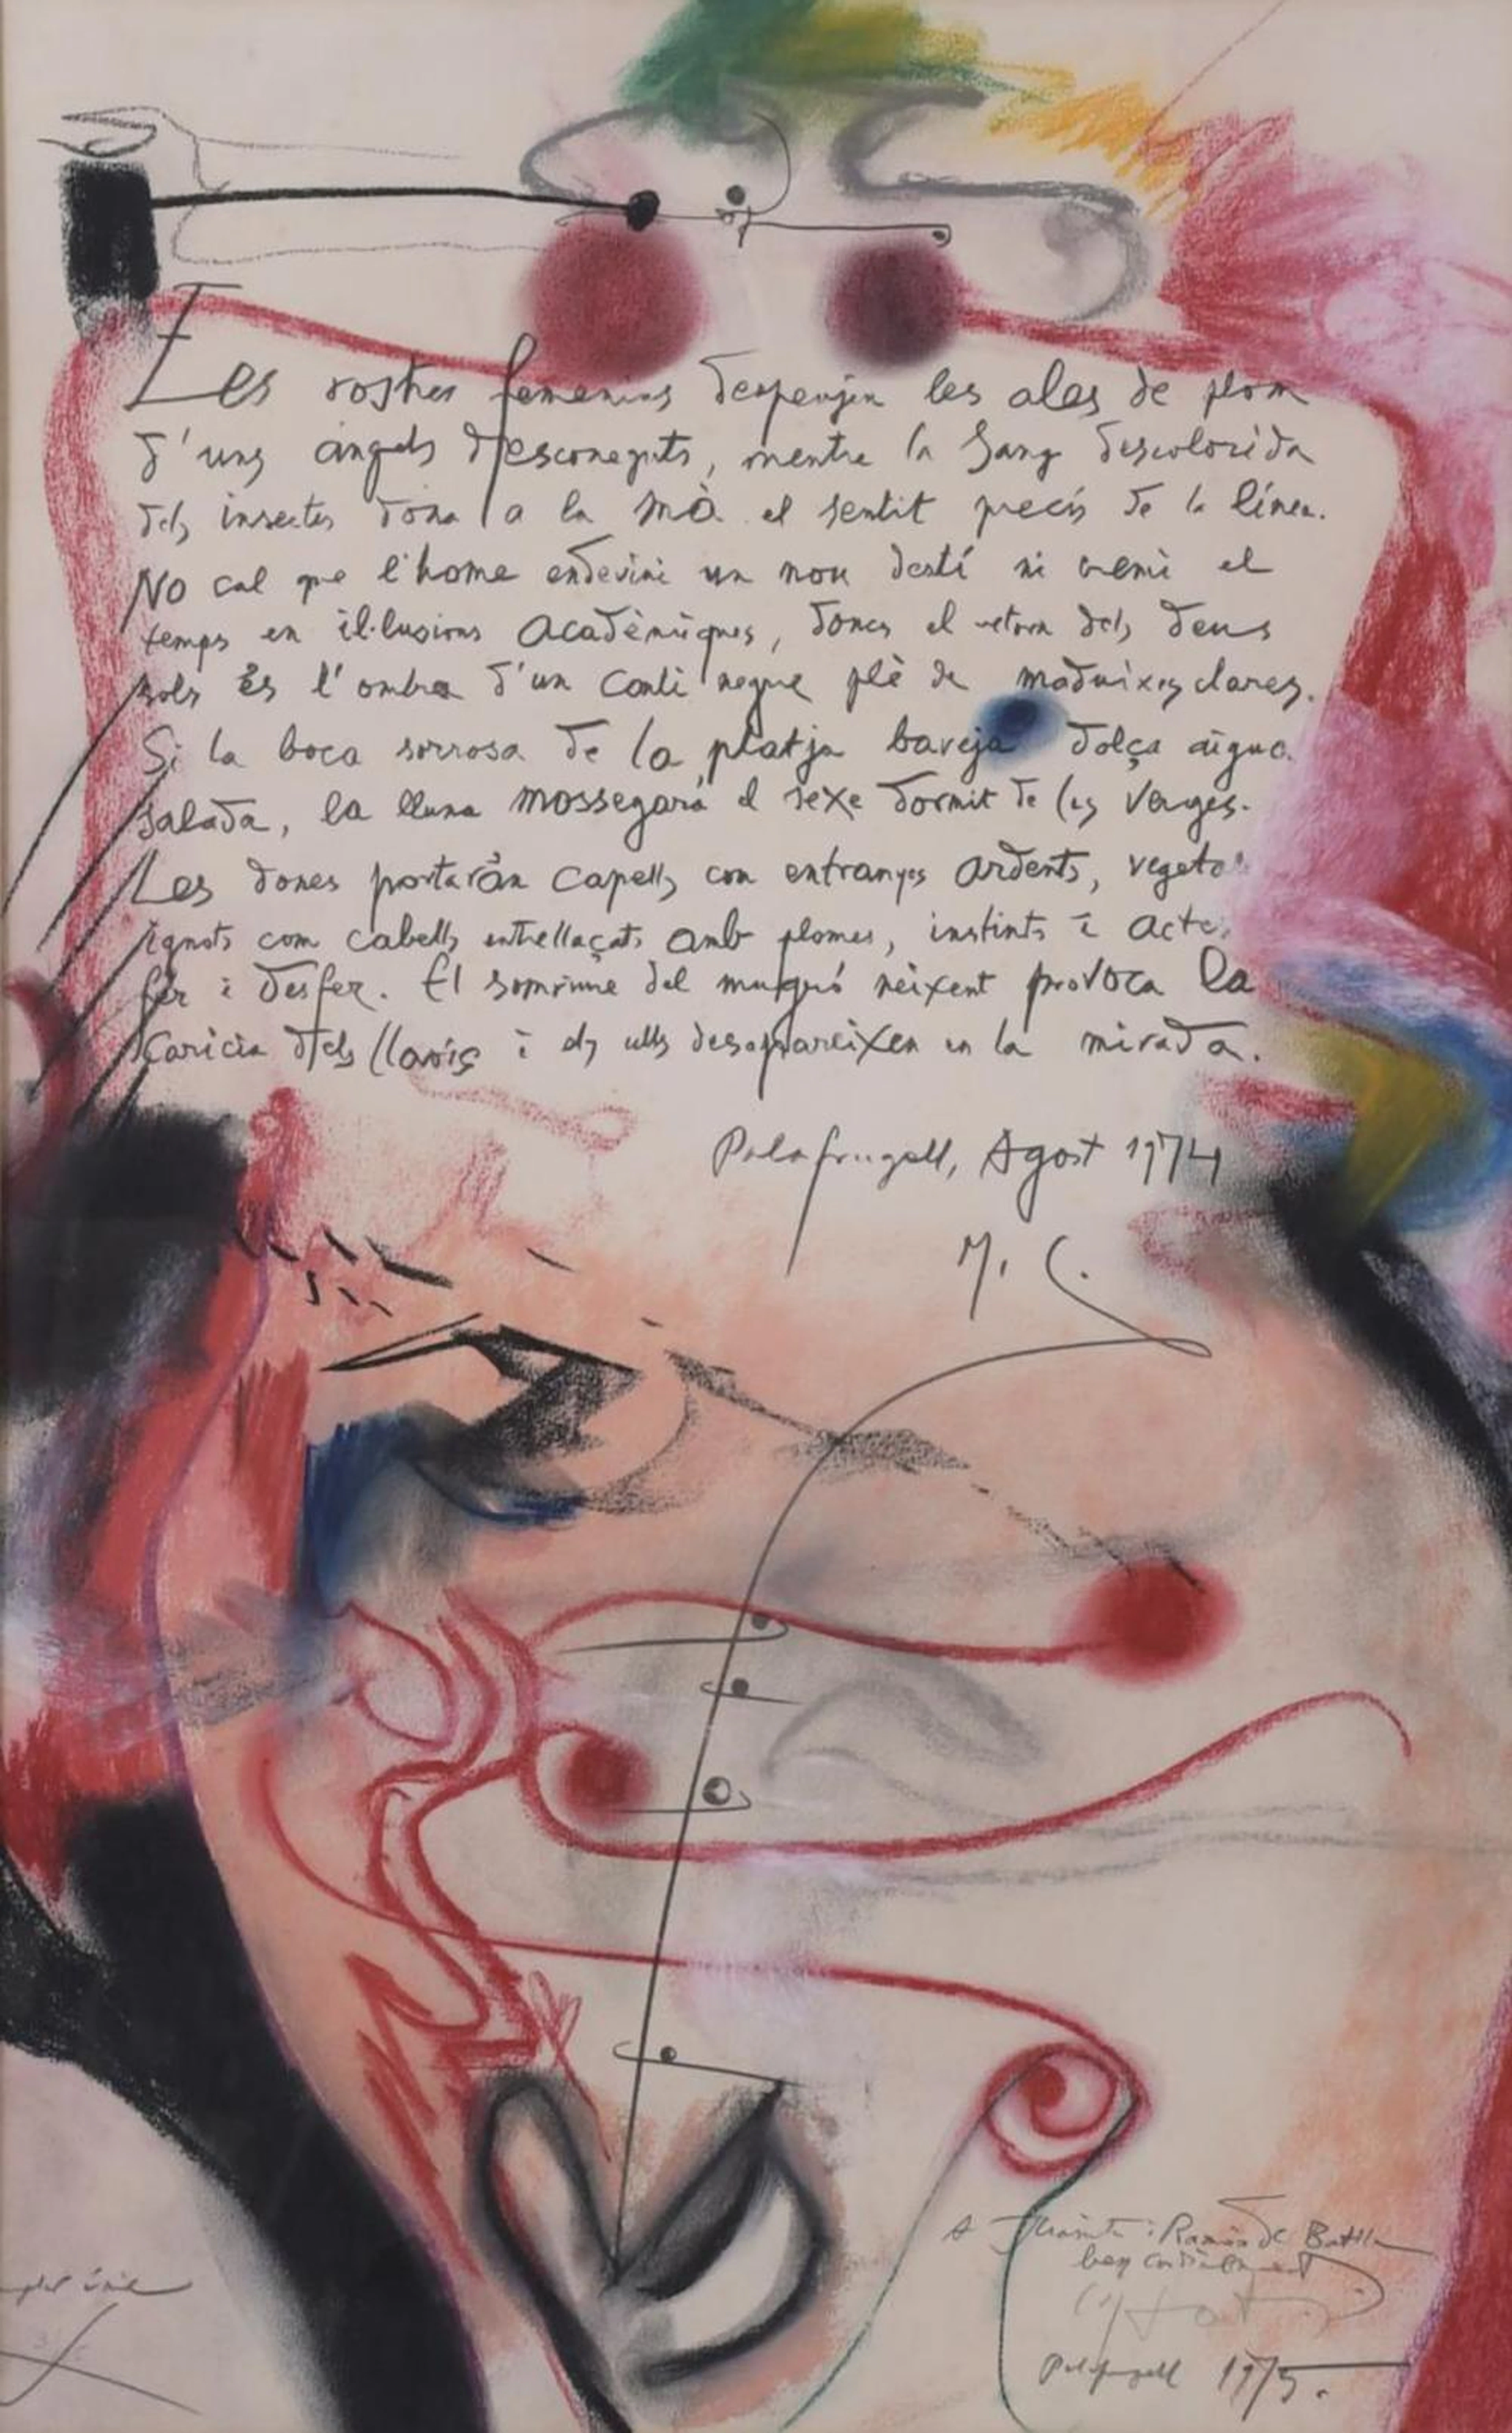 Les rostres femenins despenjen les ales de plom
d'uns àngels desconeguts, mentre la sang descolorida
dels insectes dona a la mà el sentit precís de la línea.
No cal que l'home endevini un nou destí ni cremi el
temps en il·lusions acadèmiques, doncs el retorn dels deus
sols és l'ombra d'un conli negre plè de maduixes clares.
Si la boca sorrosa de la platja baveja dolça aigua
salada, la lluna mossegarà el sexe dormit de les verges.
Les dones portaràn capells con entranyes ardents, vegetals
ignots com cabells entrellaçats amb plomes, instints i actes,
fer i desfer. El somriure del mugró neixent provoca la
caricia dels llavis i els ulls desapareixen en la mirada.
Palafrugell, Agost 1974
M. C.
A i Ramón de Batlle
ben cordialment
Palafrugell 1975.
únic